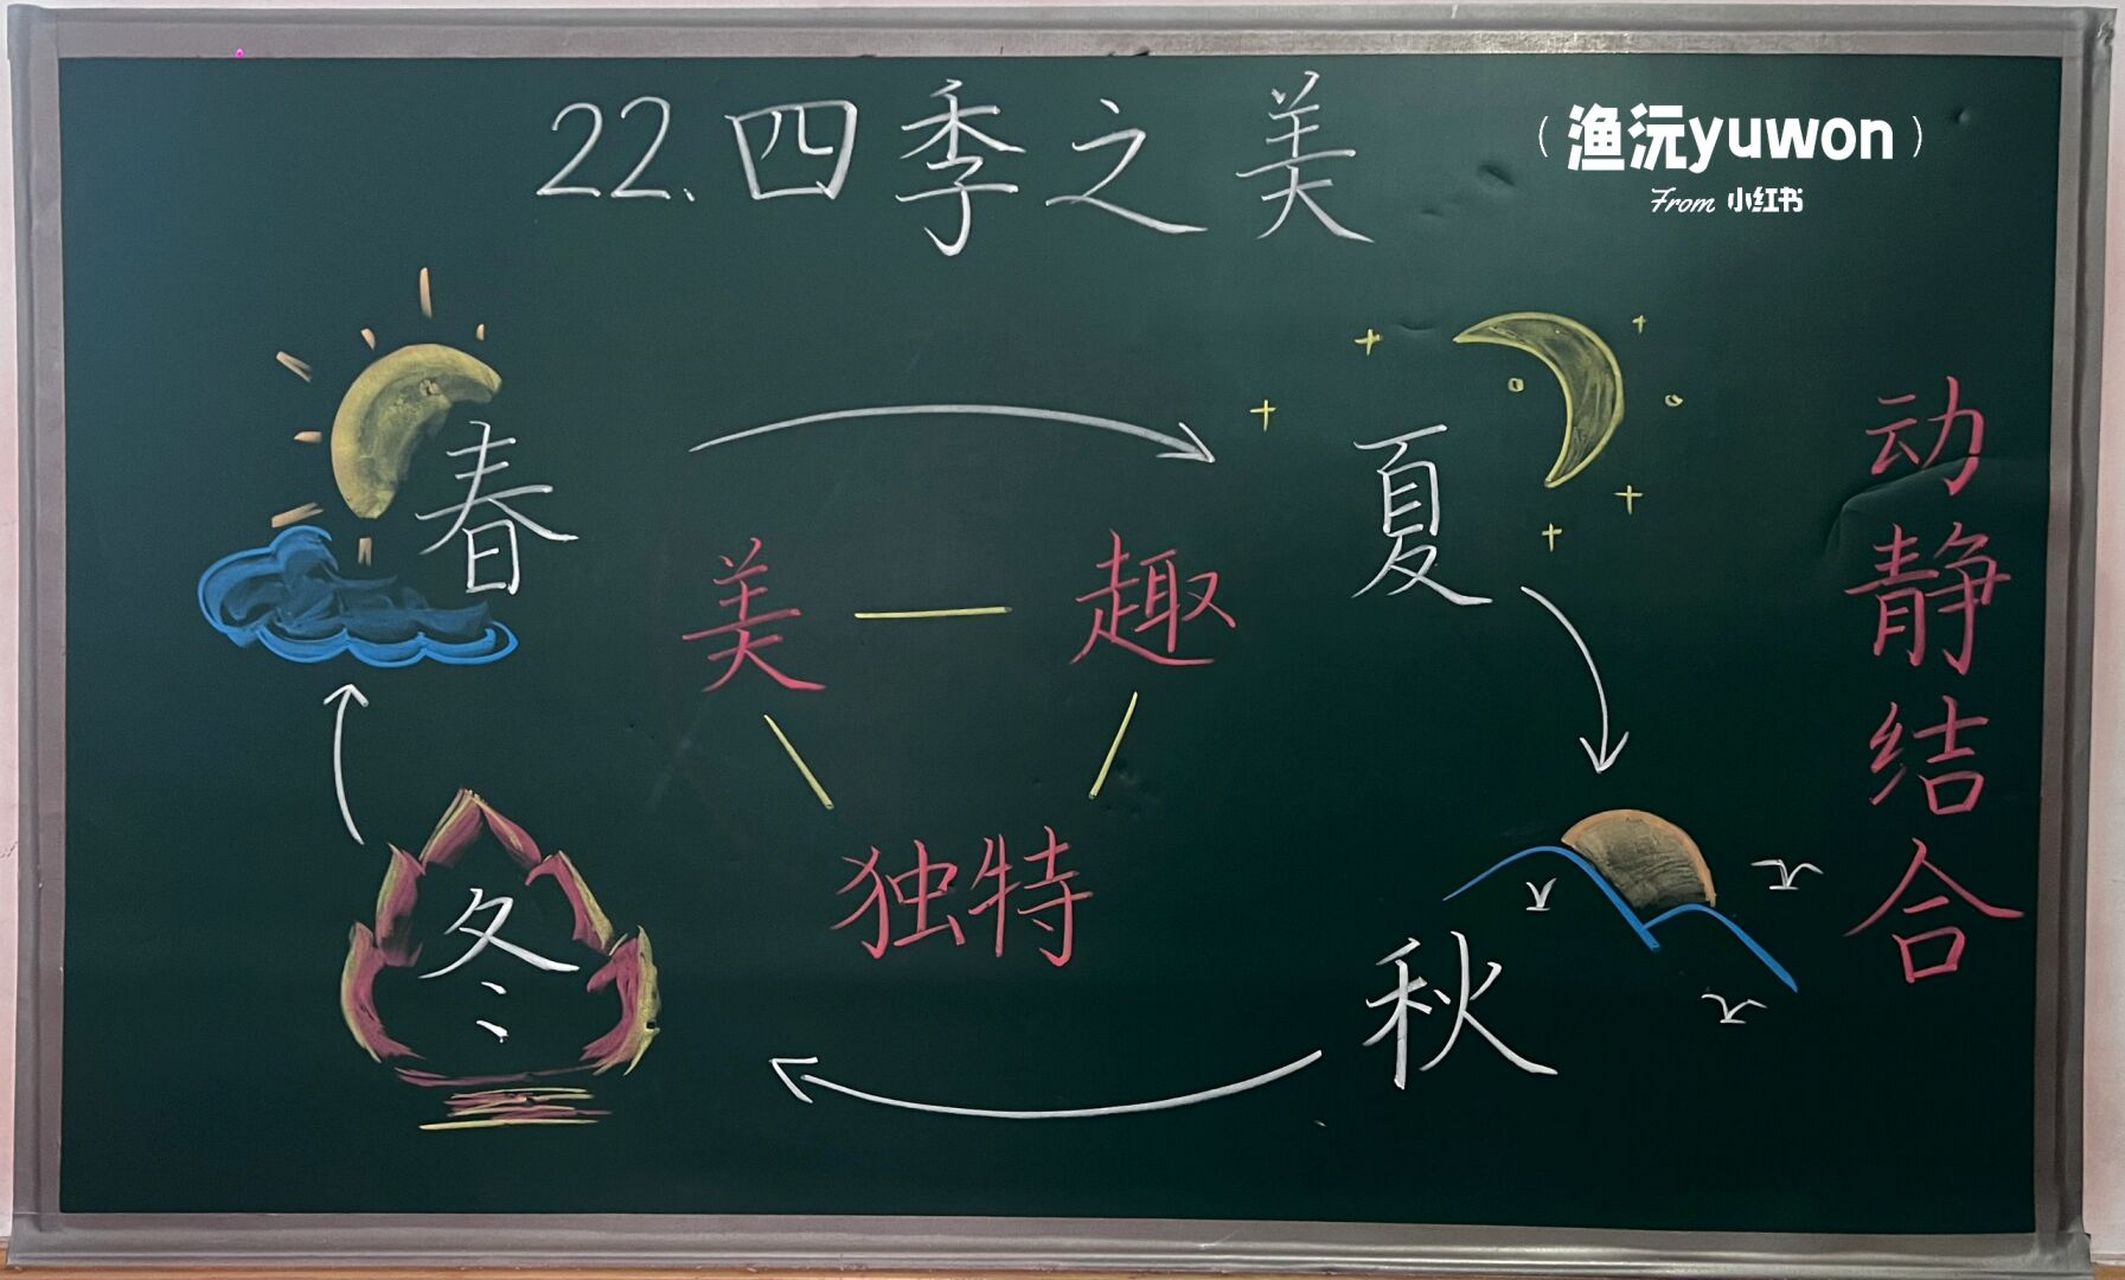 22.四季之美
（渔沅yuwon）
From 小红书
春
夏
美 — 趣
独特
冬
秋
动静结合